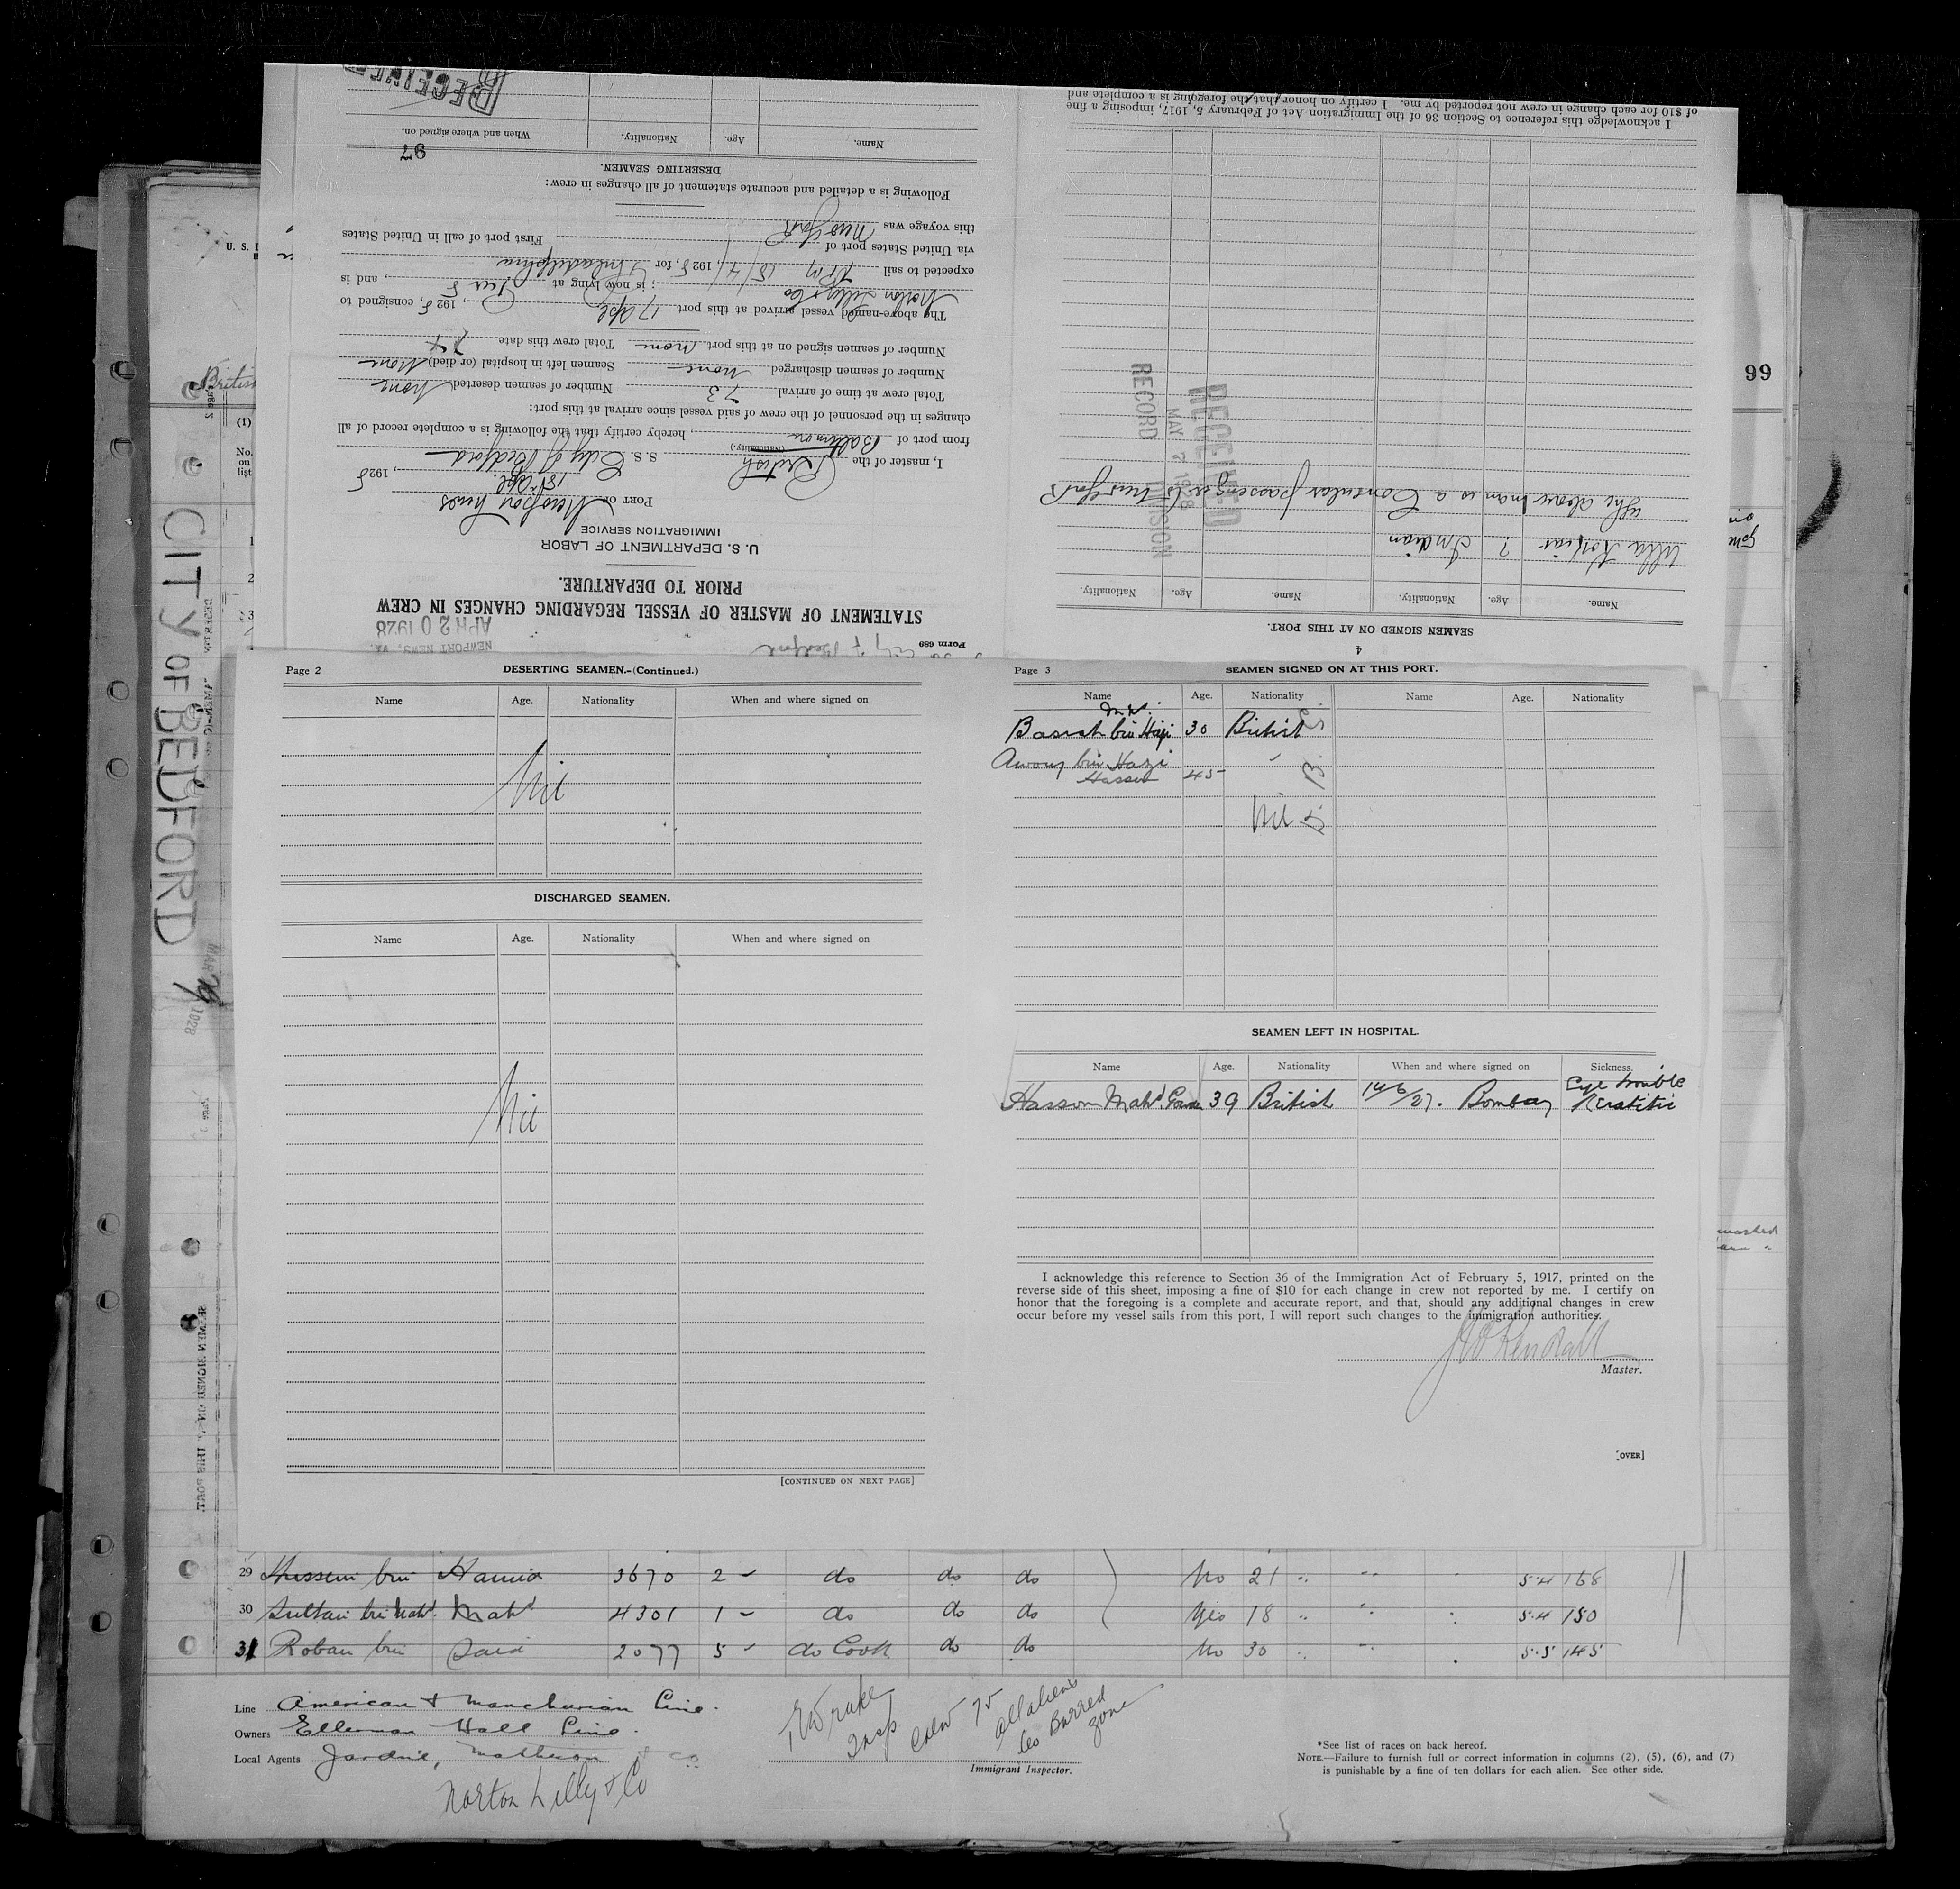 RECEIVED
When and where signed on.
Nationality.
Age.
Name.
97
DESERTING SEAMEN.
Following is a detailed and accurate statement of all changes in crew:
this voyage was
via United States port of New York First port of call in United States
expected to sail 18/4/, 1928, for Philadelphia
Norton Lilly & Co ; is now lying at Pier 8, and is
The above-named vessel arrived at this port 17 Apl, 1928, consigned to
Number of seamen signed on at this port none Total crew this date
Number of seamen discharged none Seamen left in hospital (or died) None
Total crew at time of arrival 73 Number of seamen deserted None
changes in the personnel of the crew of said vessel since arrival at this port:
from port of Baltimore, hereby certify that the following is a complete record of all
I, master of the British (Nationality.) S. S. City of Bedford
18th Apl., 1928
PORT OF Newport News
IMMIGRATION SERVICE
U. S. DEPARTMENT OF LABOR
STATEMENT OF MASTER OF VESSEL REGARDING CHANGES IN CREW
PRIOR TO DEPARTURE.
APR 20 1928
NEWPORT NEWS, VA.
Form 689
City of Bedford
of $10 for each change in crew not reported by me. I certify on honor that the foregoing is a complete and
I acknowledge this reference to Section 36 of the Immigration Act of February 5, 1917, imposing a fine
RECEIVED
MAY 2 1928
RECORD DIVISION
The above man is a Consular passenger to New York
? Indian
Name. Age. Nationality. Name. Age. Nationality.
SEAMEN SIGNED ON AT THIS PORT.
4
U. S.
British
(1)
No. on list
1
2
3
99
CITY OF BEDFORD
MAR 1928
SEAMEN SIGNED ON AT THIS PORT.
Page 2
DESERTING SEAMEN.-(Continued.)
Name Age. Nationality When and where signed on
Nil
DISCHARGED SEAMEN.
Name Age. Nationality When and where signed on
Nil
[CONTINUED ON NEXT PAGE]
Page 3
SEAMEN SIGNED ON AT THIS PORT.
Name Age. Nationality Name Age. Nationality
bin Haji 30 British
Awang bin Hazi
Hassen 45
Nil
SEAMEN LEFT IN HOSPITAL.
Name Age. Nationality When and where signed on Sickness.
Hassom Mahd. 39 British 14/6/27. Bombay Eye trouble
Keratitis
I acknowledge this reference to Section 36 of the Immigration Act of February 5, 1917, printed on the
reverse side of this sheet, imposing a fine of $10 for each change in crew not reported by me. I certify on
honor that the foregoing is a complete and accurate report, and that, should any additional changes in crew
occur before my vessel sails from this port, I will report such changes to the immigration authorities.
Kendall
Master.
[OVER]
29 Hussein bin Hamid 3670 2 do do do No 21 5.4 168
30 Sultan bin Mahd. Mahd 4301 1 do do do Yes 18 5.4 150
31 Roban bin Said 2077 5 do Cook do do No 30 5.5 145
Line American & Manchurian Line.
Owners Ellerman Hall Line.
Local Agents Jardine, Matheson & Co.
Norton Lilly & Co
Drake
Insp
Crew 75
all aliens
60 Barred
zone
Immigrant Inspector.
*See list of races on back hereof.
NOTE.—Failure to furnish full or correct information in columns (2), (5), (6), and (7)
is punishable by a fine of ten dollars for each alien. See other side.